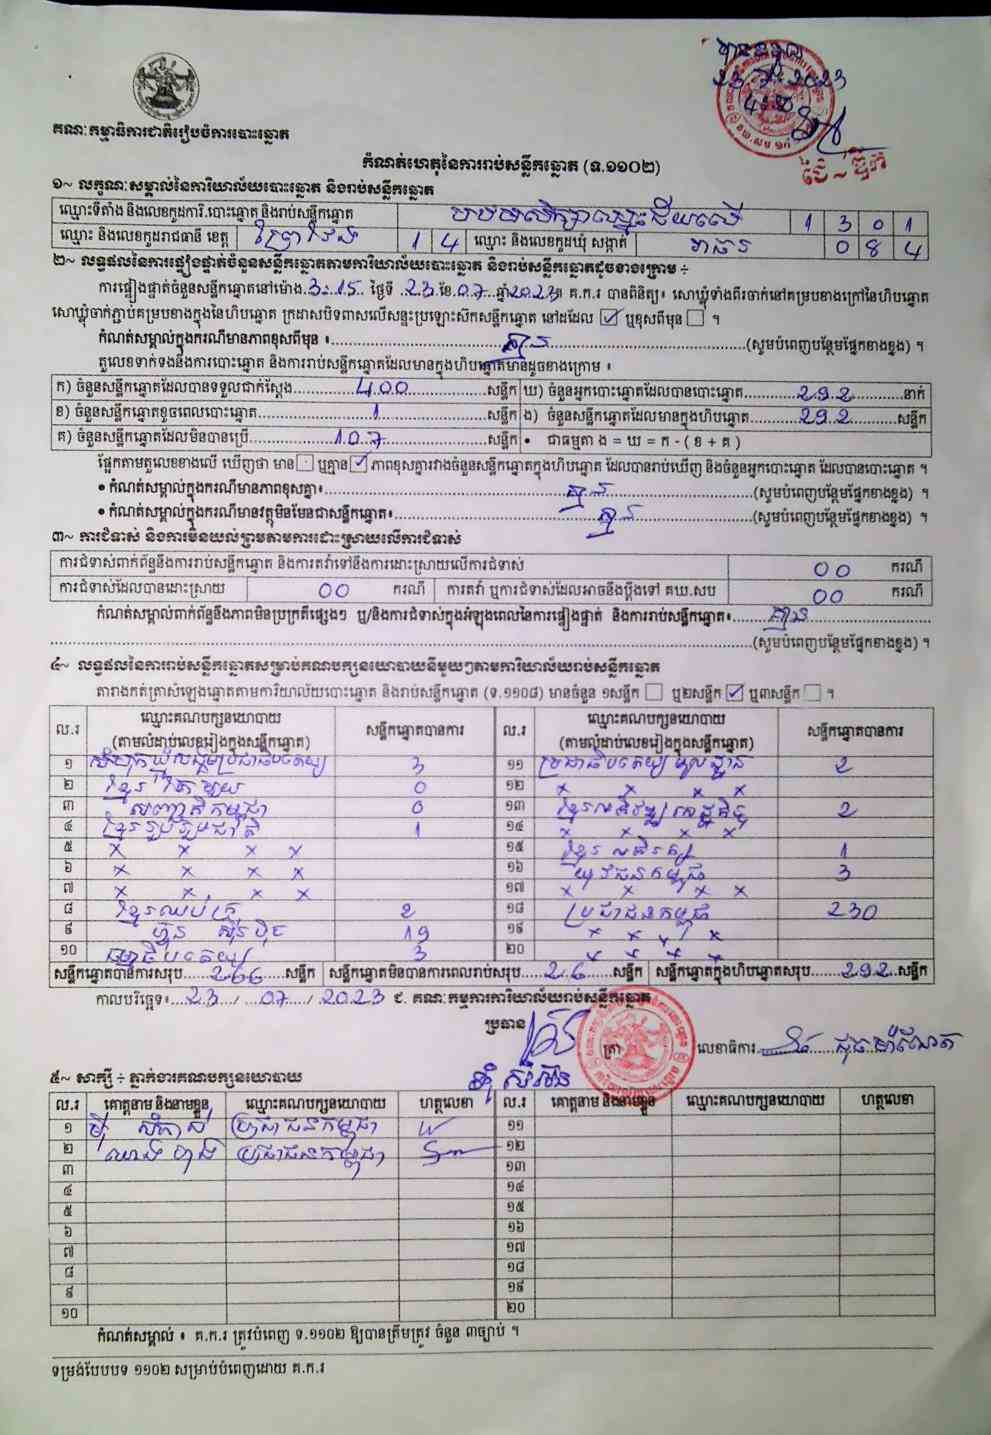 បានទទួល
23.7.2023
គណៈកម្មាធិការជាតិរៀបចំការបោះឆ្នោត
កំណត់ហេតុនៃការរាប់សន្លឹកឆ្នោត (ទ.១១០២)
១~ លក្ខណៈសម្គាល់នៃការិយាល័យបោះឆ្នោត និងរាប់សន្លឹកឆ្នោត
ឈ្មោះទីតាំង និងលេខកូដការិ.បោះឆ្នោត និងរាប់សន្លឹកឆ្នោត 1 3 0 1
ឈ្មោះ និងលេខកូដរាជធានី ខេត្ត ព្រៃវែង 1 4 ឈ្មោះ និងលេខកូដឃុំ សង្កាត់ 0 8 4
២~ លទ្ធផលនៃការផ្ទៀងផ្ទាត់ចំនួនសន្លឹកឆ្នោតតាមការិយាល័យបោះឆ្នោត និងរាប់សន្លឹកឆ្នោតដូចខាងក្រោម ÷
ការផ្ទៀងផ្ទាត់ចំនួនសន្លឹកឆ្នោតនៅម៉ោង 3:15 ថ្ងៃទី 23 ខែ 07 ឆ្នាំ 2023 គ.ក.រ បានពិនិត្យ៖ សោឃ្លុំទាំងពីរចាក់នៅគម្របខាងក្រៅនៃហិបឆ្នោត
សោឃ្លុំចាក់ភ្ជាប់គម្របខាងក្នុងនៃហិបឆ្នោត ក្រដាសបិទពាសលើសន្ទះប្រឡោះស៊កសន្លឹកឆ្នោត នៅដដែល ☑ ឬខុសពីមុន ☐ ។
កំណត់សម្គាល់ក្នុងករណីមានភាពខុសពីមុន ៖ គ្មាន (សូមបំពេញបន្ថែមផ្នែកខាងខ្នង) ។
តួលេខទាក់ទងនឹងការបោះឆ្នោត និងការរាប់សន្លឹកឆ្នោតដែលមានក្នុងហិបឆ្នោតមានដូចខាងក្រោម ៖
ក) ចំនួនសន្លឹកឆ្នោតដែលបានទទួលជាក់ស្តែង 400 សន្លឹក ឃ) ចំនួនអ្នកបោះឆ្នោតដែលបានបោះឆ្នោត 292 នាក់
ខ) ចំនួនសន្លឹកឆ្នោតខូចពេលបោះឆ្នោត 1 សន្លឹក ង) ចំនួនសន្លឹកឆ្នោតដែលមានក្នុងហិបឆ្នោត 292 សន្លឹក
គ) ចំនួនសន្លឹកឆ្នោតដែលមិនបានប្រើ 107 សន្លឹក • ជាធម្មតា ង = ឃ = ក - ( ខ + គ )
ផ្អែកតាមតួលេខខាងលើ ឃើញថា មាន ☐ ឬគ្មាន ☑ ភាពខុសគ្នារវាងចំនួនសន្លឹកឆ្នោតក្នុងហិបឆ្នោត ដែលបានរាប់ឃើញ និងចំនួនអ្នកបោះឆ្នោត ដែលបានបោះឆ្នោត ។
• កំណត់សម្គាល់ក្នុងករណីមានភាពខុសគ្នា៖ គ្មាន (សូមបំពេញបន្ថែមផ្នែកខាងខ្នង) ។
• កំណត់សម្គាល់ក្នុងករណីមានវត្ថុមិនមែនជាសន្លឹកឆ្នោត៖ គ្មាន (សូមបំពេញបន្ថែមផ្នែកខាងខ្នង) ។
៣~ ការជំទាស់ និងការមិនយល់ព្រមតាមការដោះស្រាយលើការជំទាស់
ការជំទាស់ពាក់ព័ន្ធនឹងការរាប់សន្លឹកឆ្នោត និងការតវ៉ាទៅនឹងការដោះស្រាយលើការជំទាស់ 00 ករណី
ការជំទាស់ដែលបានដោះស្រាយ 00 ករណី ការតវ៉ា ឬការជំទាស់ដែលអាចនឹងប្តឹងទៅ គឃ.សប 00 ករណី
កំណត់សម្គាល់ពាក់ព័ន្ធនឹងភាពមិនប្រក្រតីផ្សេងៗ ឬ/និងការជំទាស់ក្នុងអំឡុងពេលនៃការផ្ទៀងផ្ទាត់ និងការរាប់សន្លឹកឆ្នោត៖ គ្មាន
(សូមបំពេញបន្ថែមផ្នែកខាងខ្នង) ។
៤~ លទ្ធផលនៃការរាប់សន្លឹកឆ្នោតសម្រាប់គណបក្សនយោបាយនីមួយៗតាមការិយាល័យរាប់សន្លឹកឆ្នោត
តារាងកត់ត្រាសំឡេងឆ្នោតតាមការិយាល័យបោះឆ្នោត និងរាប់សន្លឹកឆ្នោត (ទ.១១០៨) មានចំនួន ១សន្លឹក ☐ ឬ២សន្លឹក ☑ ឬ៣សន្លឹក ☐ ។
ល.រ ឈ្មោះគណបក្សនយោបាយ (តាមលំដាប់លេខរៀងក្នុងសន្លឹកឆ្នោត) សន្លឹកឆ្នោតបានការ ល.រ ឈ្មោះគណបក្សនយោបាយ (តាមលំដាប់លេខរៀងក្នុងសន្លឹកឆ្នោត) សន្លឹកឆ្នោតបានការ
១ សំបុកឃ្មុំសង្គមប្រជាធិបតេយ្យ 3 ១១ ប្រជាធិបតេយ្យមូលដ្ឋាន 2
២ ខ្មែររួបរួម 0 ១២ x x x
៣ សញ្ជាតិកម្ពុជា 0 ១៣ ខ្មែរអភិវឌ្ឍន៍សេដ្ឋកិច្ច 2
៤ ខ្មែររួបរួមជាតិ 1 ១៤ x x x x
៥ x x x x ១៥ ខ្មែរអភិរក្ស 1
៦ x x x x ១៦ យុវជនកម្ពុជា 3
៧ x x x x ១៧ x x x x
៨ ខ្មែរឈប់ក្រ 2 ១៨ ប្រជាជនកម្ពុជា 230
៩ ហ៊្វុនស៊ិនប៉ិច 19 ១៩ x x x x
១០ ធម្មាធិបតេយ្យ 3 ២០ x x x x
សន្លឹកឆ្នោតបានការសរុប 266 សន្លឹក សន្លឹកឆ្នោតមិនបានការពេលរាប់សរុប 26 សន្លឹក សន្លឹកឆ្នោតក្នុងហិបឆ្នោតសរុប 292 សន្លឹក
កាលបរិច្ឆេទ៖ 23 / 07 / 2023 ជ. គណៈកម្មការការិយាល័យរាប់សន្លឹកឆ្នោត
ប្រធាន ត្រា លេខាធិការ
៥~ សាក្សី ÷ ភ្នាក់ងារគណបក្សនយោបាយ
ល.រ គោត្តនាម និងនាមខ្លួន ឈ្មោះគណបក្សនយោបាយ ហត្ថលេខា ល.រ គោត្តនាម និងនាមខ្លួន ឈ្មោះគណបក្សនយោបាយ ហត្ថលេខា
១ ប្រជាជនកម្ពុជា ១១
២ ប្រជាជនកម្ពុជា ១២
៣ ១៣
៤ ១៤
៥ ១៥
៦ ១៦
៧ ១៧
៨ ១៨
៩ ១៩
១០ ២០
កំណត់សម្គាល់ ៖ គ.ក.រ ត្រូវបំពេញ ទ.១១០២ ឱ្យបានត្រឹមត្រូវ ចំនួន ៣ច្បាប់ ។
ទម្រង់បែបបទ ១១០២ សម្រាប់បំពេញដោយ គ.ក.រ